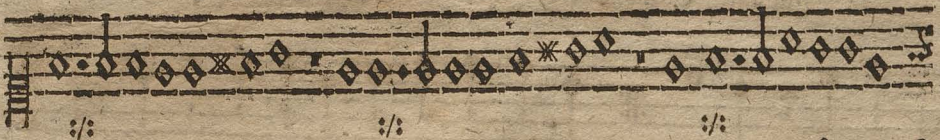 :/: :/: :/: